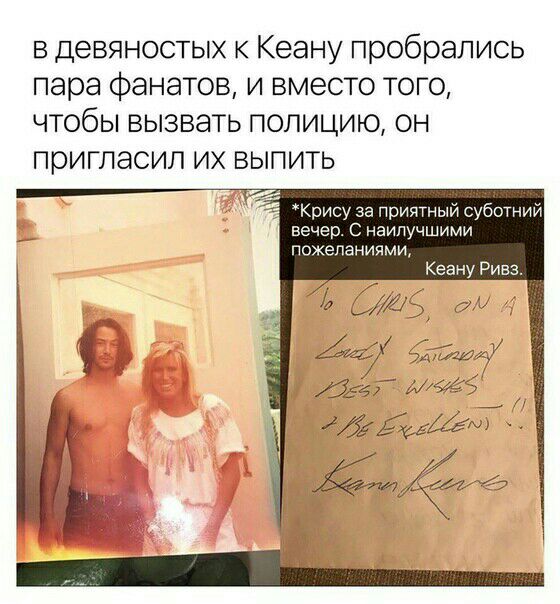 в девяностых к Кеану пробрались
пара фанатов, и вместо того,
чтобы вызвать полицию, он
пригласил их выпить
*Крису за приятный суботний
вечер. С наилучшими
пожеланиями,
Кеану Ривз.
To CHRIS, ON A
LOVELY SATURDAY
BEST WISHES
& BE EXCELLENT!!
Keanu Reeves